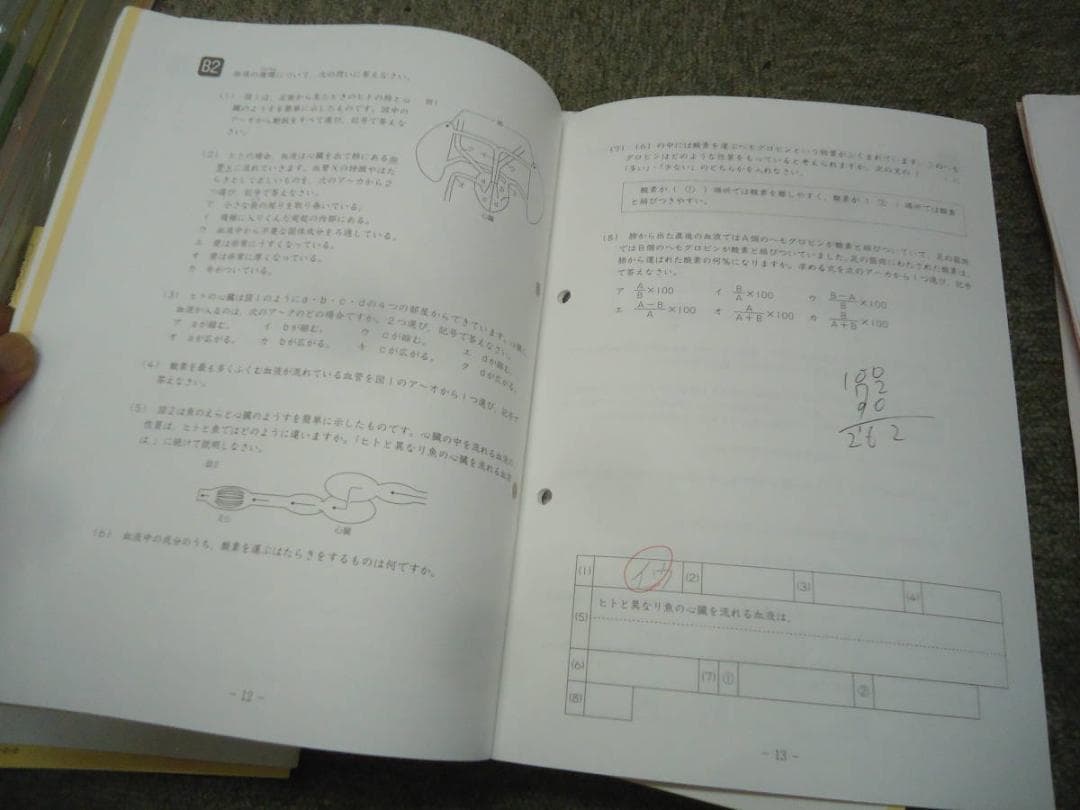 B2 血液の循環について、次の問いに答えなさい。
(1) 図1は、正面から見たときのヒトの肺と心
臓のようすを簡単に示したものです。図中の
ア〜オから動脈をすべて選び、記号で答えな
さい。
図1
肺
心臓
(2) ヒトの場合、血液は心臓を出て肺にある
に流れていきます。血管Xの特徴やはた
らきとして正しいものを、次のア〜カから
選び、記号で答えなさい。
ア 小さな袋の周りを取り巻いている。
イ 複雑に入りくんだ突起の内部にある。
ウ 血液中から不要な固体成分をろ過している。
エ 壁は非常にうすくなっている。
オ 壁は非常に厚くなっている。
カ 弁がついている。
(3) ヒトの心臓は図1のようにa・b・c・dの4つの部屋からできています。
血液が入るのは、次のア〜クのどの場合ですか。2つ選び、記号で答えなさい。
ア aが縮む。 イ bが縮む。 ウ cが縮む。 エ dが縮む。
オ aが広がる。 カ bが広がる。 キ cが広がる。 ク dが広がる。
(4) 酸素を最も多くふくむ血液が流れている血管を図1のア〜オから1つ選び、記号で
答えなさい。
(5) 図2は魚のえらと心臓のようすを簡単に示したものです。心臓の中を流れる血液の
性質は、ヒトと魚ではどのように違いますか。「ヒトと異なり魚の心臓を流れる血液
は、」に続けて説明しなさい。
図2
えら
心臓
(6) 血液中の成分のうち、酸素を運ぶはたらきをするものは何ですか。
- 12 -
(7) (6)の中には酸素を運ぶヘモグロビンという物質がふくまれています。
グロビンはどのような性質をもっていると考えられますか。次の文の( )に
「多い」・「少ない」のどちらかを入れなさい。
酸素が( ① )場所では酸素を離しやすく、酸素が( ② )場所では酸素
と結びつきやすい。
(8) 肺から出た直後の血液ではA個のヘモグロビンが酸素と結びついていて、足の筋肉
ではB個のヘモグロビンが酸素と結びついていました。足の筋肉にわたされた酸素は、
肺から運ばれた酸素の何%になりますか。求める式を次のア〜カから1つ選び、記号
で答えなさい。
ア A/B×100 イ B/A×100 ウ B-A/B×100
エ A-B/A×100 オ A/A+B×100 カ B/A+B×100
100
72
90
262
(1) (2) (3) (4)
(5) ヒトと異なり魚の心臓を流れる血液は、
(6) (7) ① ②
(8)
- 13 -